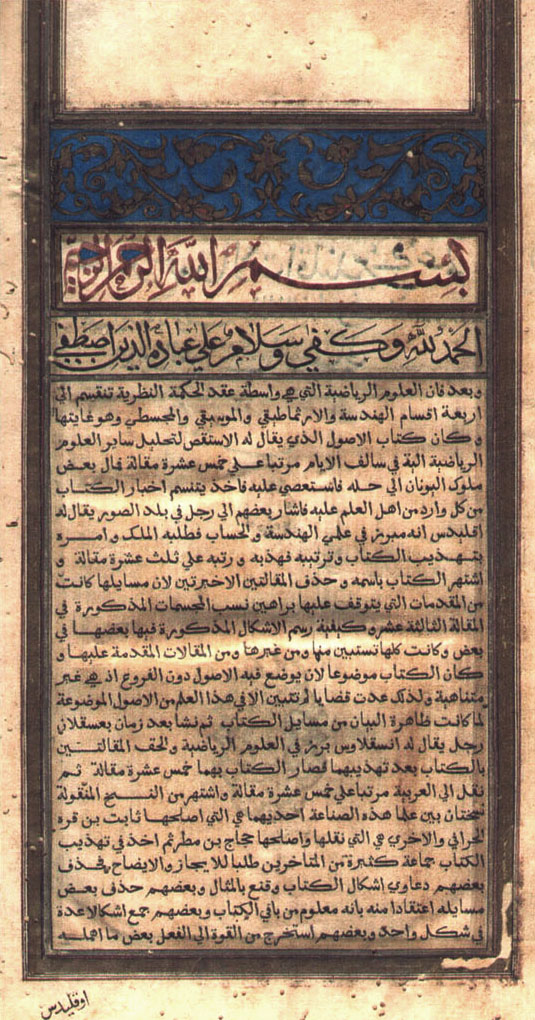 بسم الله الرحمن الرحيم
الحمد لله وكفي وسلام علي عباده الذين اصطفي
وبعد فان العلوم الرياضية التي هي واسطة عقد الحكمة النظرية تنقسم الي
اربعة اقسام الهندسة والارثماطيقي والموسيقي والمجسطي وهو غايتها
وكان كتاب الاصول الذي يقال له الاستقص لتحليل ساير العلوم
الرياضية الية في سالف الايام مرتبا علي خمس عشرة مقالة فمال بعض
ملوك اليونان الي حله فاستعصي عليه فاخذ يتنسم اخبار الكتاب
من كل وارد من اهل العلم عليه فاشار بعضهم الي رجل في بلد الصور يقال له
اقليدس انه مبرز في علمي الهندسة والحساب فطلبه الملك وامره
بتهذيب الكتاب وترتيبه فهذبه ورتبه علي ثلث عشرة مقالة و
اشتهر الكتاب باسمه وحذف المقالتين الاخيرتين لان مسايلها كانت
من المقدمات التي يتوقف عليها براهين نسب المجسمات المذكورة في
المقالة الثالثة عشر وكيفية رسم الاشكال المذكورة فيها بعضها في
بعض وكانت كلها تستبين منها ومن غيرها ومن المقالات المقدمة عليها و
كان الكتاب موضوعا لان يوضع فيه الاصول دون الفروع اذ هي غير
متناهية ولذلك عدت قضايا لم تتبين الا في هذا العلم من الاصول الموضوعة
لما كانت ظاهرة البيان من مسايل الكتاب ثم نشا بعد زمان بعسقلان
رجل يقال له انسقلاوس برز في العلوم الرياضية والحق المقالتين
بالكتاب بعد تهذيبهما فصار الكتاب بهما خمس عشرة مقالة ثم
نقل الي العربية مرتبا علي خمس عشرة مقالة واشتهر من النسخ المنقولة
نسختان بين علما هذه الصناعة احديهما هي التي اصلحها ثابت بن قره
الحراني والاخري هي التي نقلها واصلحها حجاج بن مطر ثم اخذ في تهذيب
الكتاب جماعة كثيرة من المتاخرين طلبا للايجاز والايضاح فحذف
بعضهم دعاوي اشكال الكتاب وقنع بالمثال وبعضهم حذف بعض
مسايله اعتقادا منه بانه معلوم من باقي الكتاب وبعضهم جمع اشكالا عدة
في شكل واحد وبعضهم استخرج من القوة الي الفعل بعض ما اهمله
اوقليدس